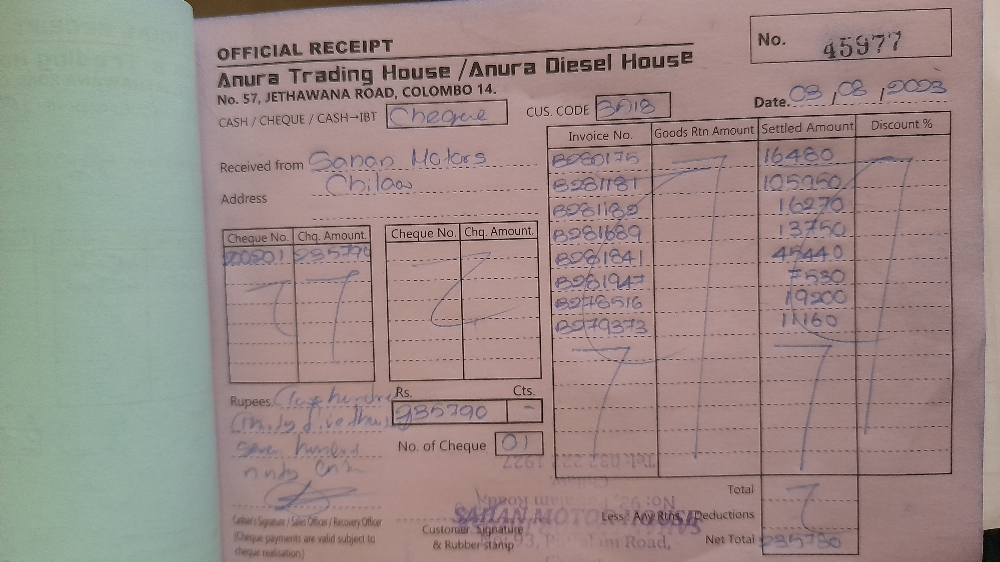 OFFICIAL RECEIPT
No. 45977
Anura Trading House / Anura Diesel House
No. 57, JETHAWANA ROAD, COLOMBO 14.
Date. 03/08/2023
CASH / CHEQUE / CASH→IBT Cheque
CUS. CODE 3A18
Invoice No. Goods Rtn Amount Settled Amount Discount %
Received from Sanan Motors
Address Chilaw
B280175 16480
B281181 105950
B281182 16270
B281689 13750
B281841 45440
B281947 7530
B278516 19200
B279373 11160
Cheque No. Chq. Amount. Cheque No. Chq. Amount.
200201 235790
Rupees. Two hundred
thirty five thou
seven hundred
ninty only
Rs. Cts.
235790 -
No. of Cheque 01
Tel: 032 222 1927
Total
Less : Any Rtns / Deductions
Net Total 235790
Cashier's Signature / Sales Officer / Recovery Officer
(Cheque payments are valid subject to
cheque realisation)
Customer Signature
& Rubber stamp
SAHAN MOTOR HOUSE
No: 93, Puttalam Road,